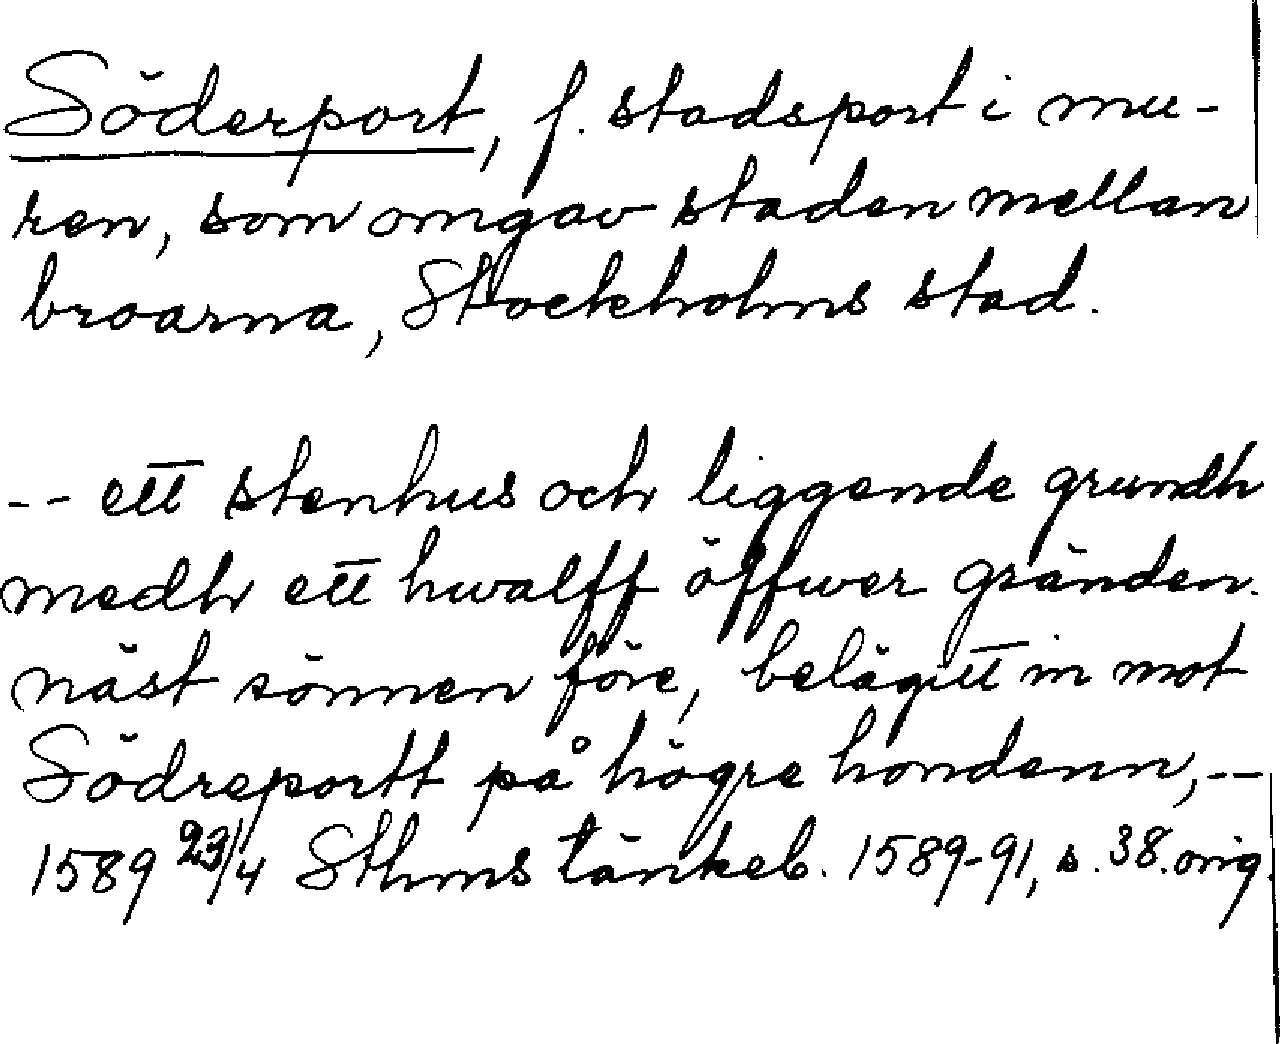 Söderport, f. stadsport i mu-
ren, som omgav staden mellan
broarna, Stockholms stad.
-- ett stenhus och liggende grundh
medh ett hwalff öffwer gränden
näst sönnen före, belägitt in mot
Södreportt på högre hondenn, --
1589 23/4 Sthms tänkeb. 1589-91, s. 38. orig.